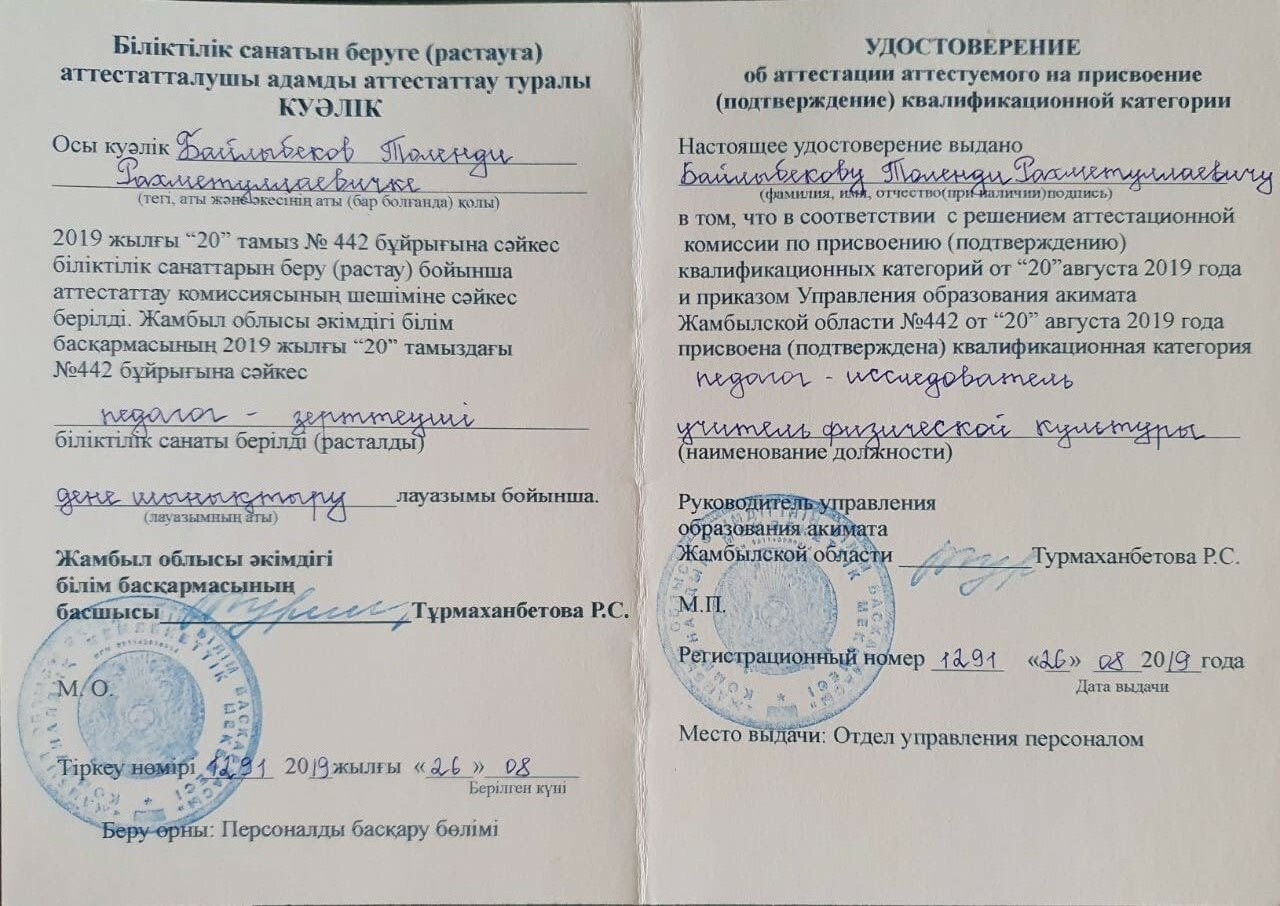 Біліктілік санатын беруге (растауға)
аттестатталушы адамды аттестаттау туралы
КУӘЛІК
Осы куәлік Байлыбеков Толенди
Рахметуллаевичке
(тегі, аты және әкесінің аты (бар болғанда) қолы)
2019 жылғы “20” тамыз № 442 бұйрығына сәйкес
біліктілік санаттарын беру (растау) бойынша
аттестаттау комиссиясының шешіміне сәйкес
берілді. Жамбыл облысы әкімдігі білім
басқармасының 2019 жылғы “20” тамыздағы
№442 бұйрығына сәйкес
педагог - зерттеуші
біліктілік санаты берілді (расталды)
дене шынықтыру лауазымы бойынша.
(лауазымның аты)
Жамбыл облысы әкімдігі
білім басқармасының
басшысы Тұрмаханбетова Р.С.
М. О.
Тіркеу нөмірі 1291 2019 жылғы «26» 08
Берілген күні
Беру орны: Персоналды басқару бөлімі
УДОСТОВЕРЕНИЕ
об аттестации аттестуемого на присвоение
(подтверждение) квалификационной категории
Настоящее удостоверение выдано
Байлыбекову Толенди Рахметуллаевичу
(фамилия, имя, отчество(при наличии)подпись)
в том, что в соответствии с решением аттестационной
комиссии по присвоению (подтверждению)
квалификационных категорий от “20”августа 2019 года
и приказом Управления образования акимата
Жамбылской области №442 от “20” августа 2019 года
присвоена (подтверждена) квалификационная категория
педагог - исследователь
учитель физической культуры
(наименование должности)
Руководитель управления
образования акимата
Жамбылской области Турмаханбетова Р.С.
М.П.
Регистрационный номер 1291 «26» 08 2019 года
Дата выдачи
Место выдачи: Отдел управления персоналом